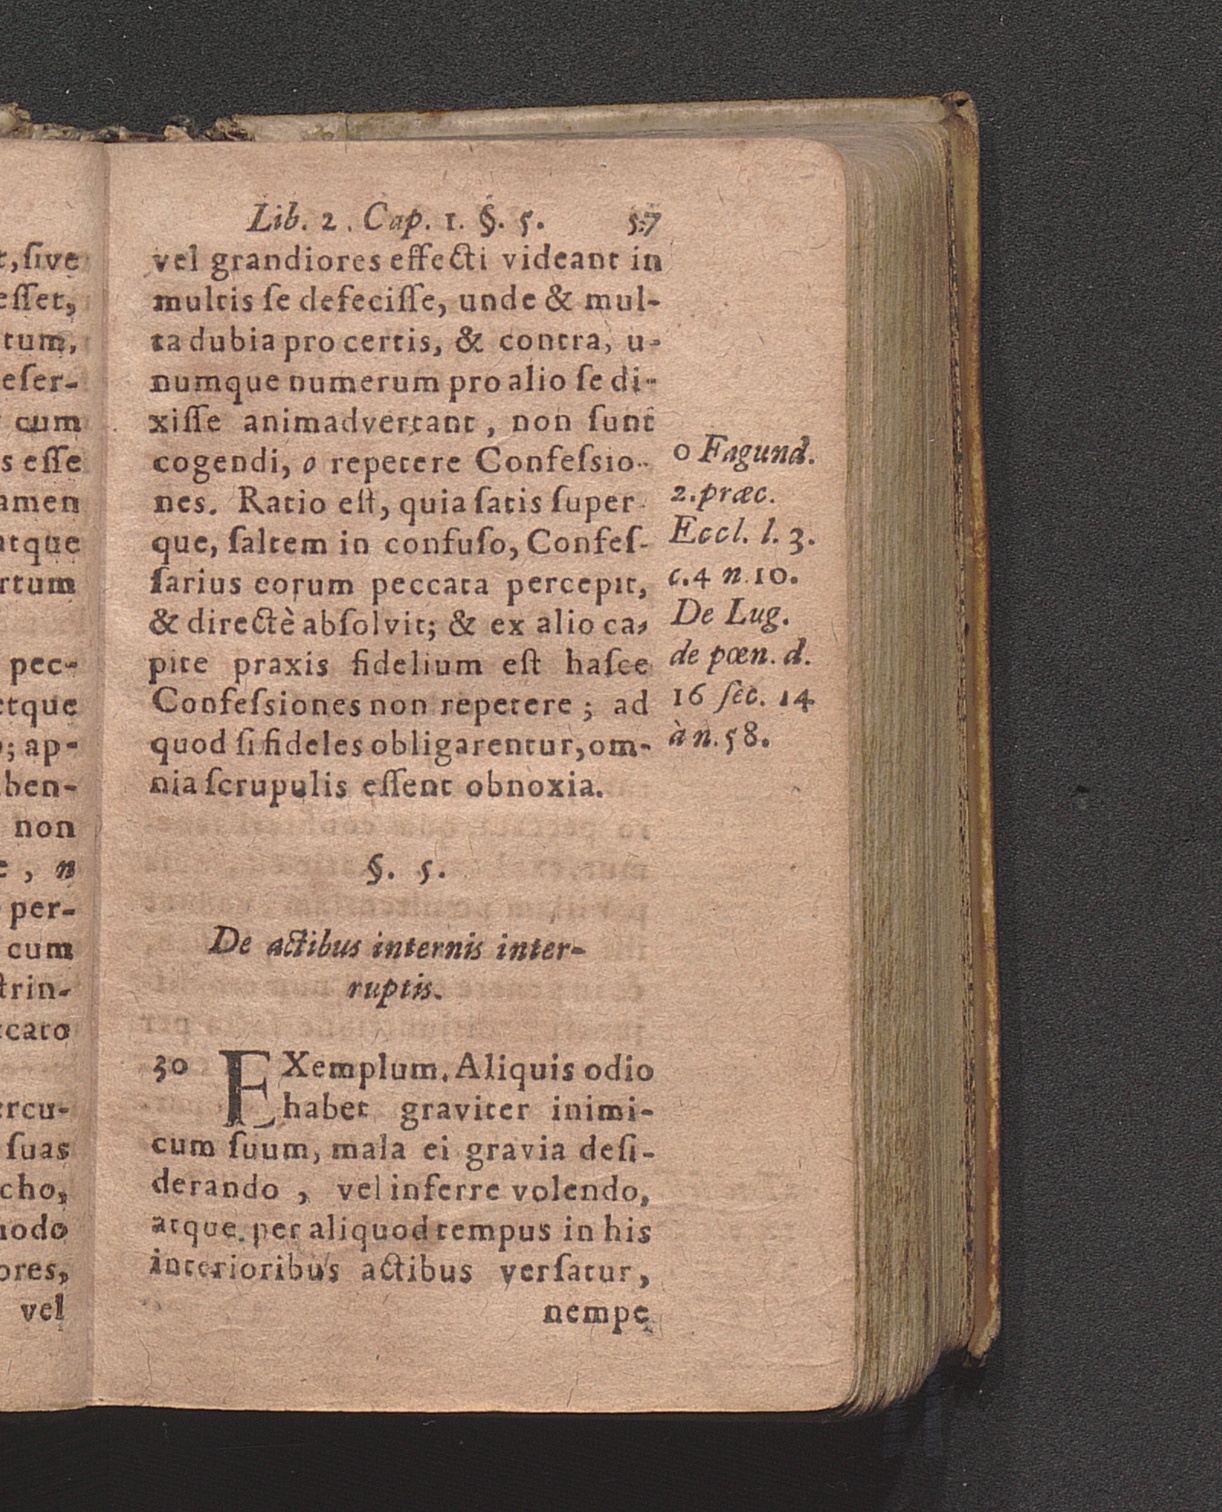 t, ſive
eſſet,
tum,
eſer-
cum
s eſſe
amen
atque
rtum
pec-
etque
o; ap-
ben-
non
e, n
per-
cum
ſtrin-
ccato
ercu-
ſuas
cho,
modo
ores,
vel
Lib. 2. Cap. 1. §. 5. 57
vel grandiores effecti videant in
multis ſe defeciſſe, unde & mul-
ta dubia pro certis, & contra, u-
numque numerum pro alio ſe di-
xiſſe animadvertant, non ſunt
cogendi, o repetere Confeſsio-
nes. Ratio eſt, quia ſatis ſuper
que, ſaltem in confuſo, Confeſ-
ſarius eorum peccata percepit,
& directè abſolvit; & ex alio ca-
pite praxis fidelium eſt haſce
Confeſsiones non repetere; ad
quod ſi fideles obligarentur, om-
nia ſcrupulis eſſent obnoxia.
o Fagund.
2. præc.
Eccl. l. 3.
c. 4 n. 10.
De Lug.
de pœn. d.
16 ſec. 14
à n. 58.
§. 5.
De actibus internis inter-
ruptis.
30 EXemplum. Aliquis odio
habet graviter inimi-
cum ſuum, mala ei gravia deſi-
derando, vel inferre volendo,
atque per aliquod tempus in his
interioribus actibus verſatur,
nempe